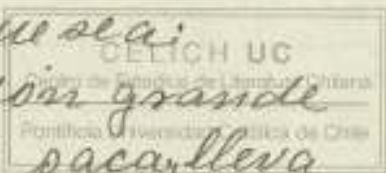 ue sea;
CELICH UC
Centro de Estudios de Literatura Chilena
ón grande
Pontificia Universidad Católica de Chile
saca, lleva